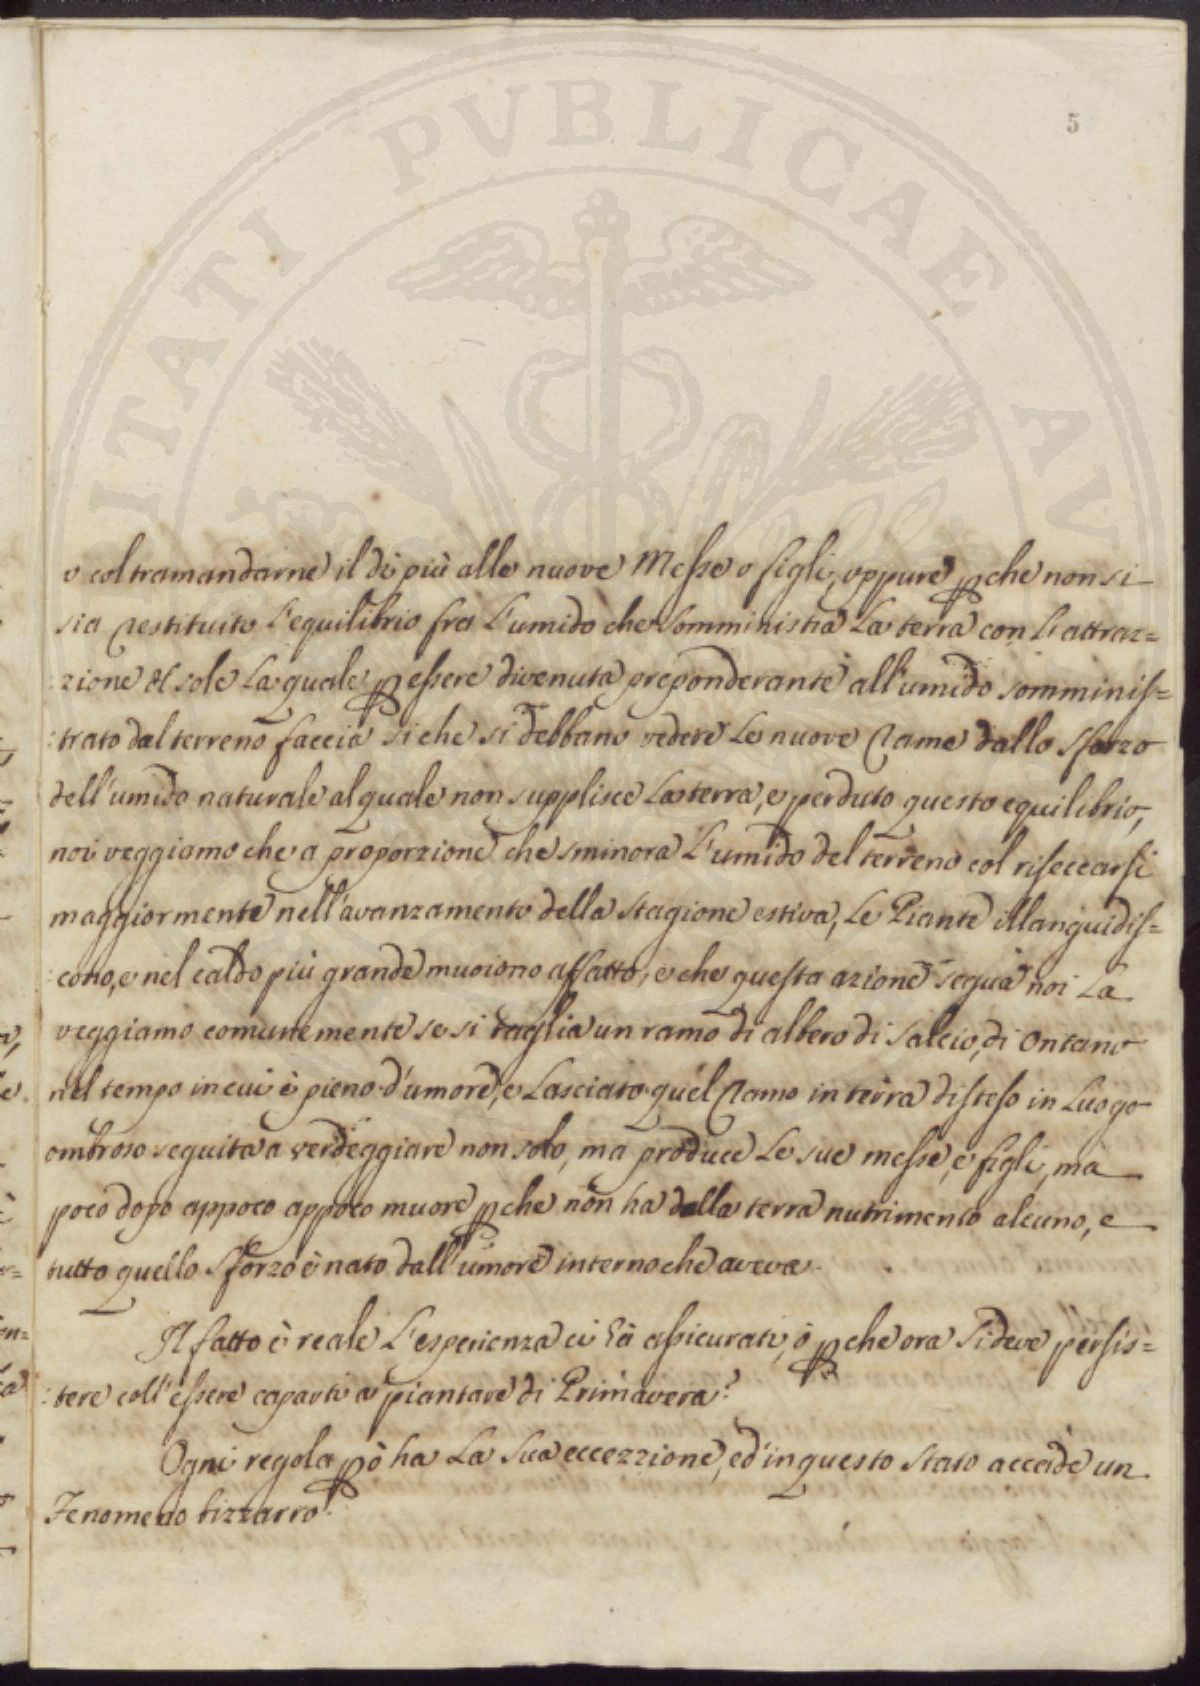 5
PVBLICAE
ITATI
AV
o col tramandarne il di più alle nuove Messe o figli, oppure pche non si
sia restituito l'equilibrio fra l'umido che somministra la terra con l'attraz=
:zione del sole la quale p essere divenuta preponderante all'umido somminis=
:trato dal terreno faccia si che si debbano vedere le nuove rame dallo sforzo
dell'umido naturale al quale non supplisce la terra, e perduto questo equilibrio,
noi veggiamo che a proporzione che sminora l'umido del terreno col riseccarsi
maggiormente nell'avanzamento della stagione estiva, le Piante illanguidis=
:cono, e nel caldo più grande muoiono affatto, e che questa azione segua noi la
veggiamo comunemente se si taglia un ramo di albero di salcio, di ontano
nel tempo in cui è pieno d'umore, e lasciato quel ramo in terra disteso in luogo
ombroso seguita a verdeggiare non solo, ma produce le sue messe, e figli, ma
poco dopo appoco appoco muore pche non ha dalla terra nutrimento alcuno, e
tutto quello sforzo è nato dall'umore interno che aveva.
Il fatto è reale l'esperienza ci hà assicurati, ò pche ora si deve persis=
:tere coll'essere caparti a piantare di Primavera?
Ogni regola pò ha la sua eccezzione, ed in questo stato accade un
Fenomeno bizzarro.